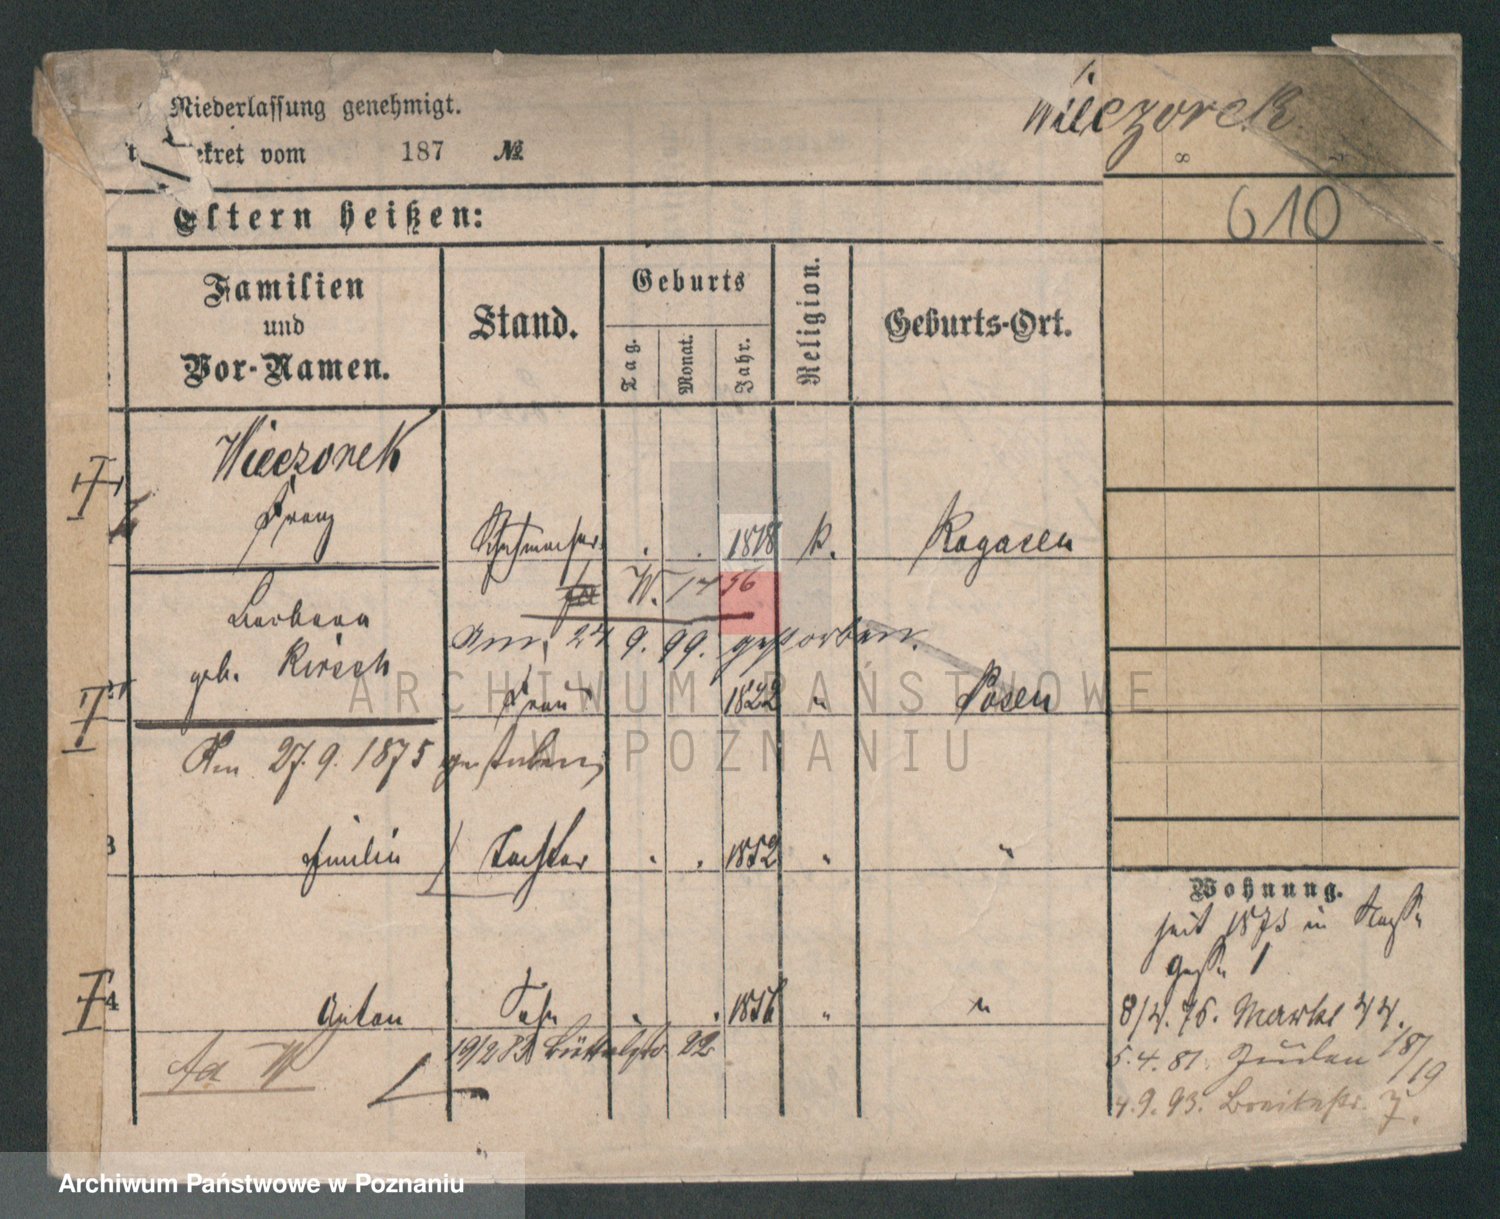 Niederlassung genehmigt.
ekret vom 187 №
Wieczorek
610
Eltern heißen:
Familien
und
Vor-Namen.
Stand.
Geburts
Tag.
Monat.
Jahr.
Religion.
Geburts-Ort.
Wieczorek
Franz
Schuhmacher 1818 k. Rogasen
W. 1456
Am 24 9. 99. gestorben.
Barbara
geb. Kirsch
Frau 1822 " Posen
Am 27. 9. 1875 gestorben
3 Emilie Tochter 1852 " "
4 Anton Sohn 1856 " "
19/2 82 Büttelstr. 22
Wohnung.
seit 1873 in
8/4. 76. Markt 44.
5. 4. 81. Juden 18/19
4. 9. 93. Breitestr. 7.
ARCHIWUM PAŃSTWOWE
W POZNANIU
Archiwum Państwowe w Poznaniu